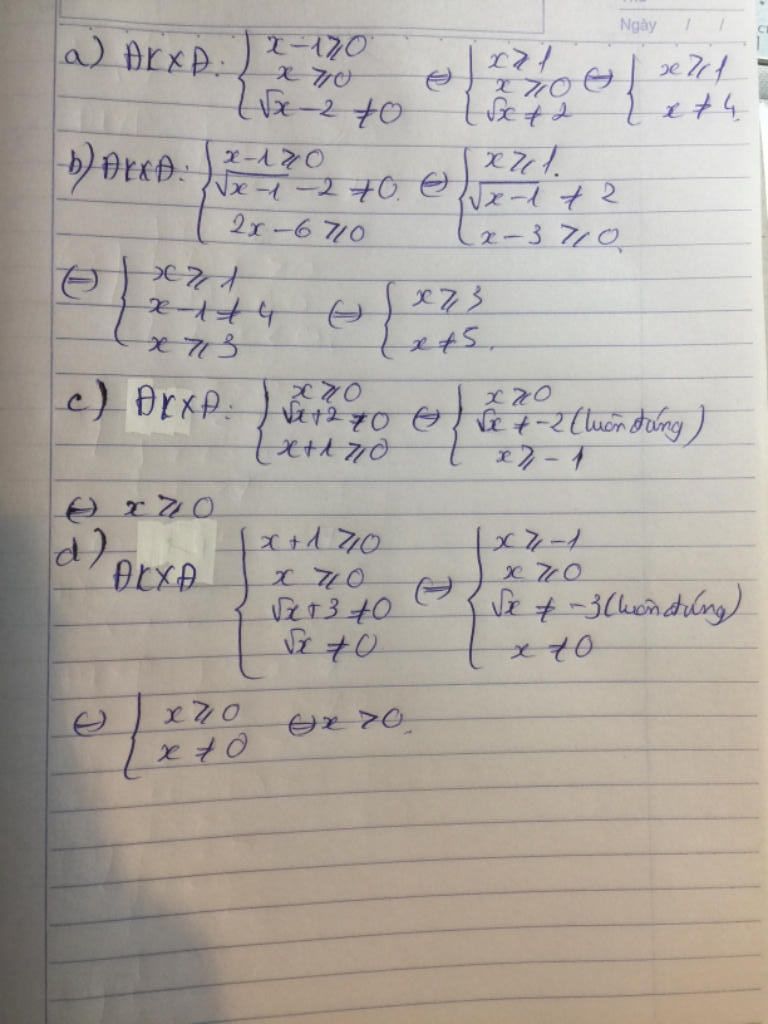 Ngày / /
a) ĐKXĐ: { x-1⩾0 ; x⩾0 ; √x-2≠0 ⇔ { x⩾1 ; x⩾0 ; √x≠2 ⇔ { x⩾1 ; x≠4.
b) ĐKXĐ: { x-1⩾0 ; √(x-1)-2≠0. ; 2x-6⩾0 ⇔ { x⩾1. ; √(x-1)≠2 ; x-3⩾0.
⇔ { x⩾1 ; x-1≠4 ; x⩾3 ⇔ { x⩾3 ; x≠5.
c) ĐKXĐ: { x⩾0 ; √x+2≠0 ; x+1⩾0 ⇔ { x⩾0 ; √x≠-2 (luôn đúng) ; x⩾-1
⇔ x⩾0
d) ĐKXĐ { x+1⩾0 ; x⩾0 ; √x+3≠0 ; √x≠0 ⇔ { x⩾-1 ; x⩾0 ; √x≠-3 (luôn đúng) ; x≠0
⇔ { x⩾0 ; x≠0 ⇔ x>0.